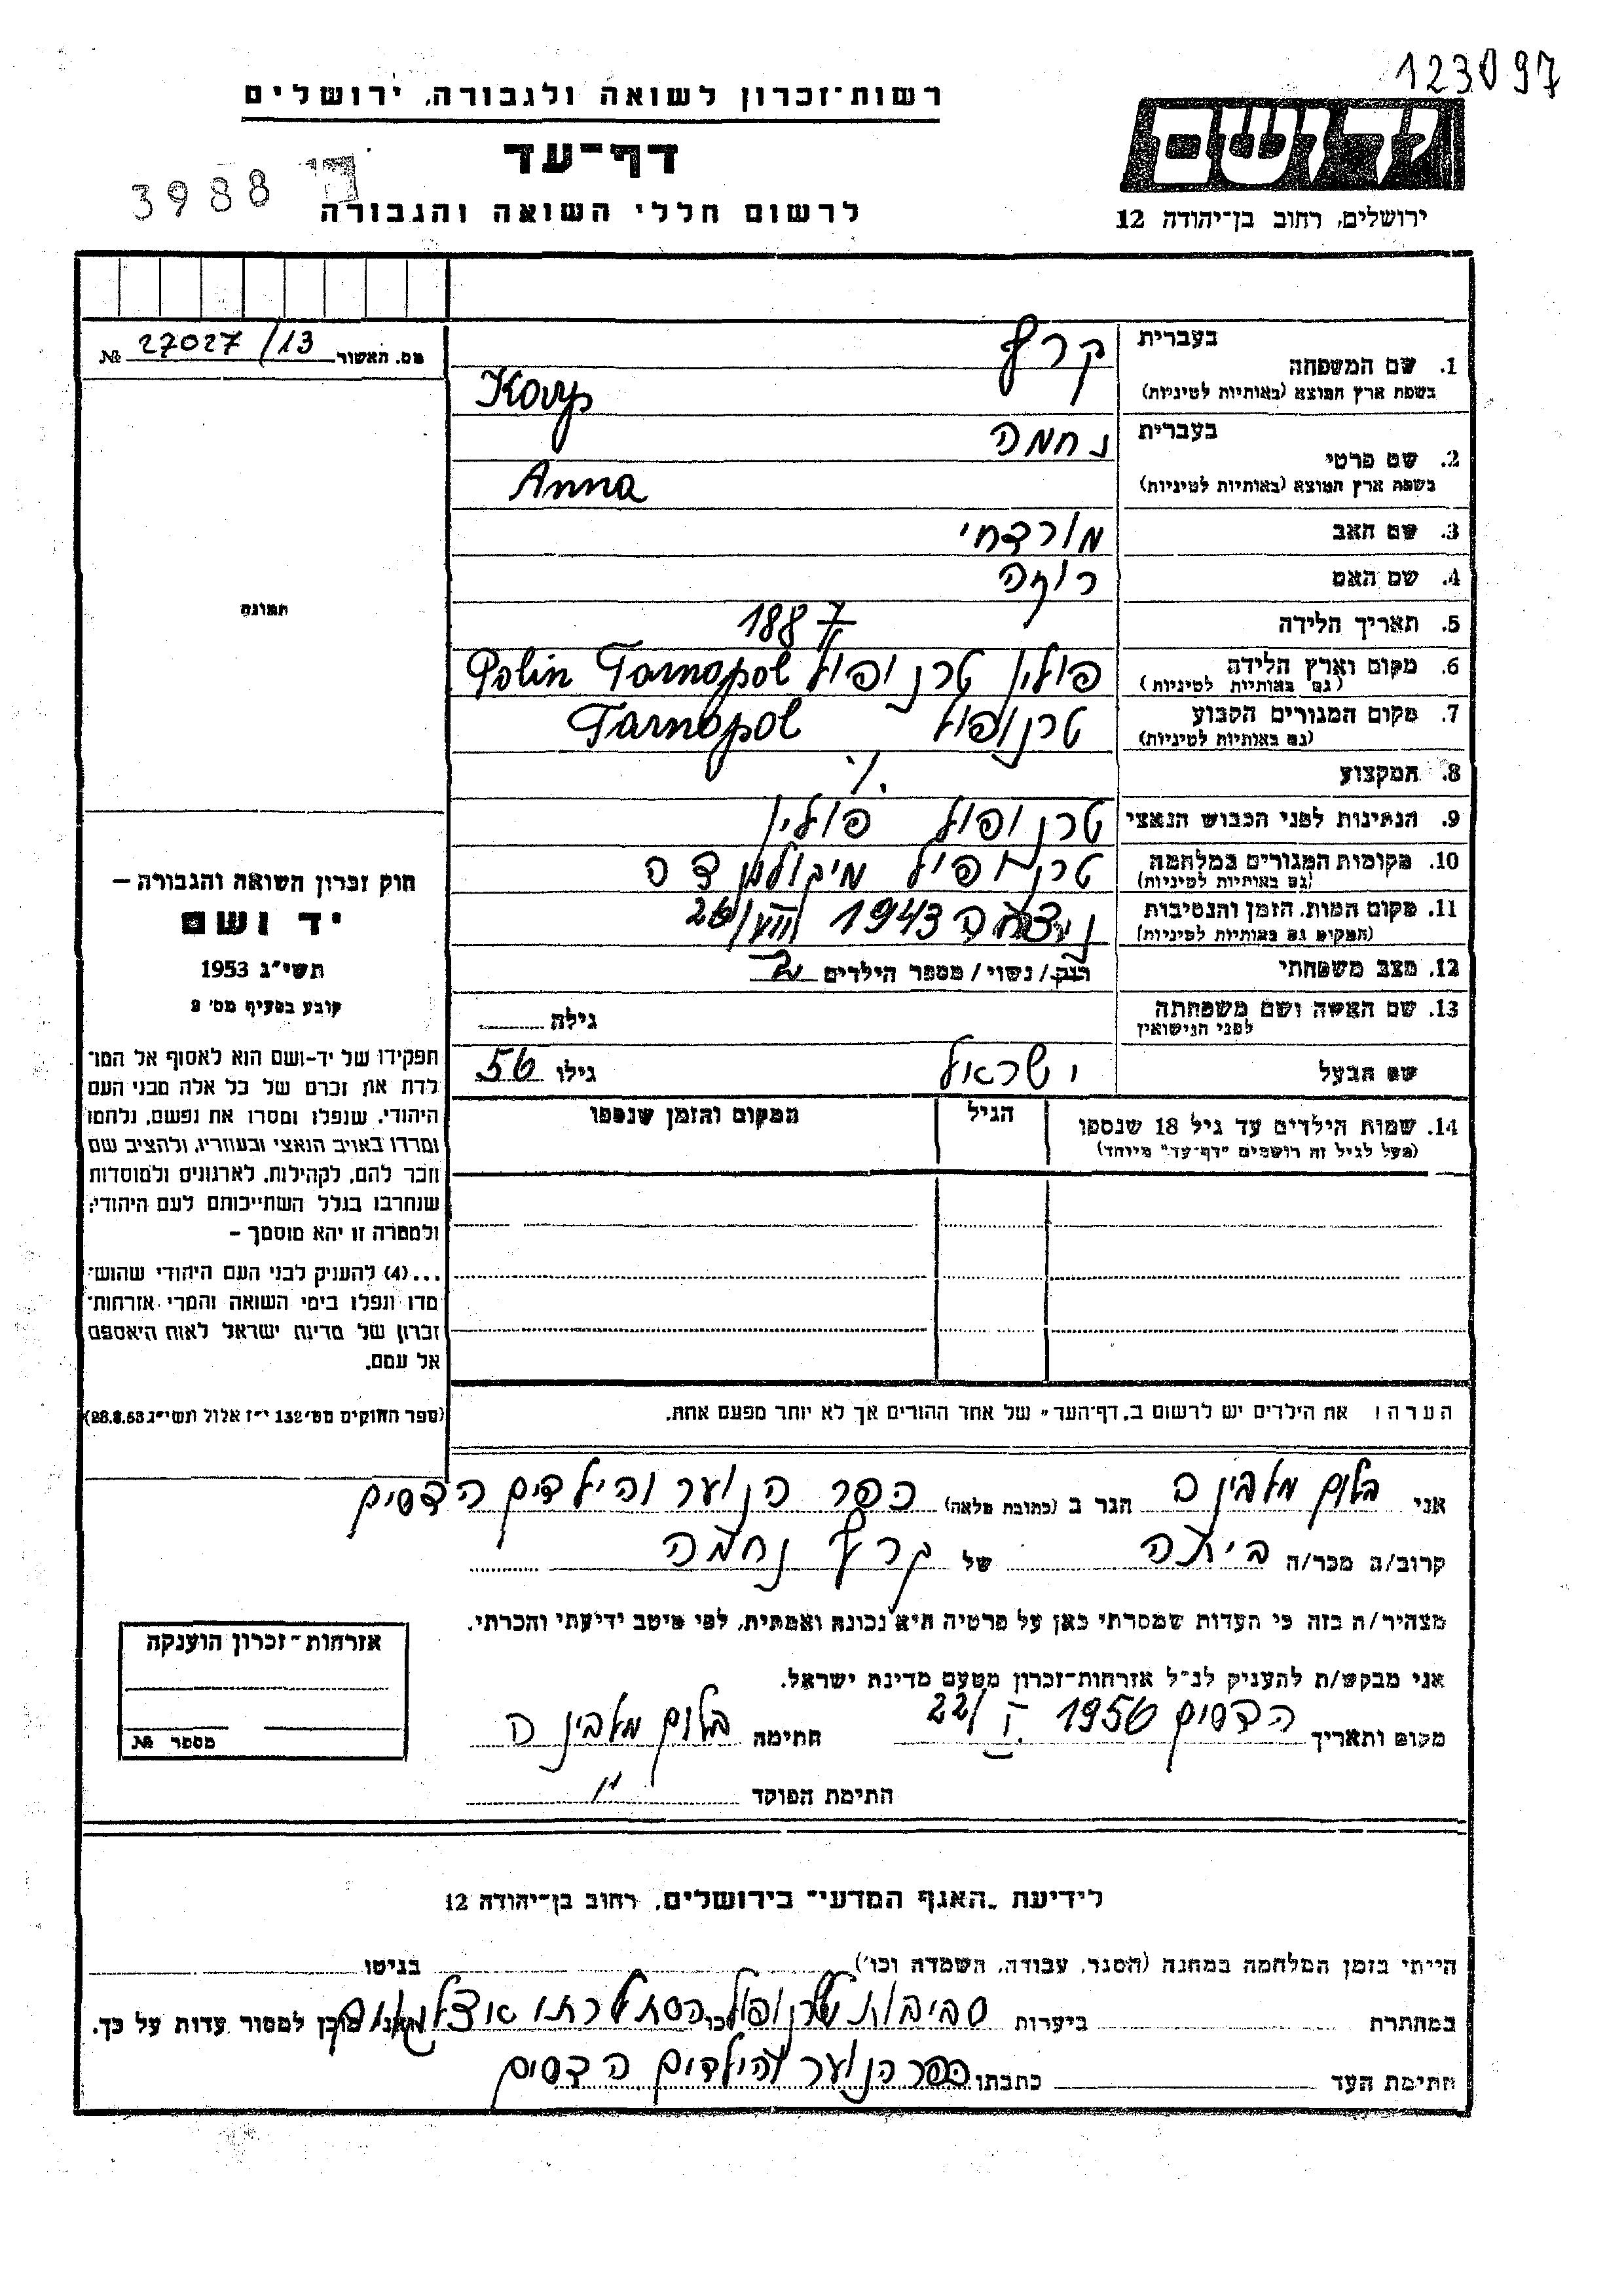 123097
רשות־זכרון לשואה ולגבורה, ירושלים
ידושם
דף־עד
3988
לרשום חללי השואה והגבורה
ירושלים, רחוב בן־יהודה 12
מס. האשור 27027/13 №
1. שם המשפחה
בעברית קרף
בשפת ארץ המוצא (באותיות לטיניות)
2. שם פרטי
בעברית נחמה
בשפת ארץ המוצא (באותיות לטיניות) Anna
3. שם האב מורדחי
4. שם האם רוזה
5. תאריך הלידה 1887
6. מקום וארץ הלידה פולין טרנופול Polin Tarnopol
(גם באותיות לטיניות)
7. מקום המגורים הקבוע טרנופול Tarnopol
(גם באותיות לטיניות)
8. המקצוע ./.
9. הנתינות לפני הכבוש הנאצי טרנופול פולין
10. מקומות המגורים במלחמה טרנופיל
(גם באותיות לטיניות)
11. מקום המות, הזמן והנסיבות 1943
(המקום גם באותיות לטיניות)
12. מצב משפחתי רווק/נשוי/מספר הילדים 2
13. שם האשה ושם משפחתה
לפני הנישואין
גילה
שם הבעל ישראל גילו 56
14. שמות הילדים עד גיל 18 שנספו
(מעל לגיל זה רושמים "דף־עד" מיוחד)
הגיל
המקום והזמן שנספו
תמונה
חוק זכרון השואה והגבורה –
יד ושם
תשי"ג 1953
קובע בסעיף מס' 2
תפקידו של יד-ושם הוא לאסוף אל המו־
לדת את זכרם של כל אלה מבני העם
היהודי, שנפלו ומסרו את נפשם, נלחמו
ומרדו באויב הנאצי ובעוזריו, ולהציב שם
וזכר להם, לקהילות, לארגונים ולמוסדות
שנחרבו בגלל השתייכותם לעם היהודי;
ולמטרה זו יהא מוסמך –
...(4) להעניק לבני העם היהודי שהוש־
מדו ונפלו בימי השואה והמרי אזרחות־
זכרון של מדינת ישראל לאות היאספם
אל עמם.
(ספר החוקים מס' 132 י"ז אלול תשי"ג 28.8.53)
הערה: את הילדים יש לרשום ב„דף־העד" של אחד ההורים אך לא יותר מפעם אחת.
אני בלום מלבינה הגר ב (כתובת מלאה) כפר הנוער והילדים הדסים
קרוב/ה מכר/ה ביתה של קרף נחמה
מצהיר/ה בזה כי העדות שמסרתי כאן על פרטיה היא נכונה ואמתית, לפי מיטב ידיעתי והכרתי.
אני מבקש/ת להעניק לנ"ל אזרחות־זכרון מטעם מדינת ישראל.
מקום ותאריך הדסים 1956 I/22 חתימה בלום מלבינה
חתימת הפוקד
אזרחות־זכרון הוענקה
מספר №
לידיעת „האגף המדעי" בירושלים, רחוב בן־יהודה 12
הייתי בזמן המלחמה במחנה (הסגר, עבודה, השמדה וכו') בגיטו
במחתרת ביערות סביבות טרנופול וכו' ואני מוכן למסור עדות על כך.
חתימת העד כתבתו כפר הנוער והילדים הדסים